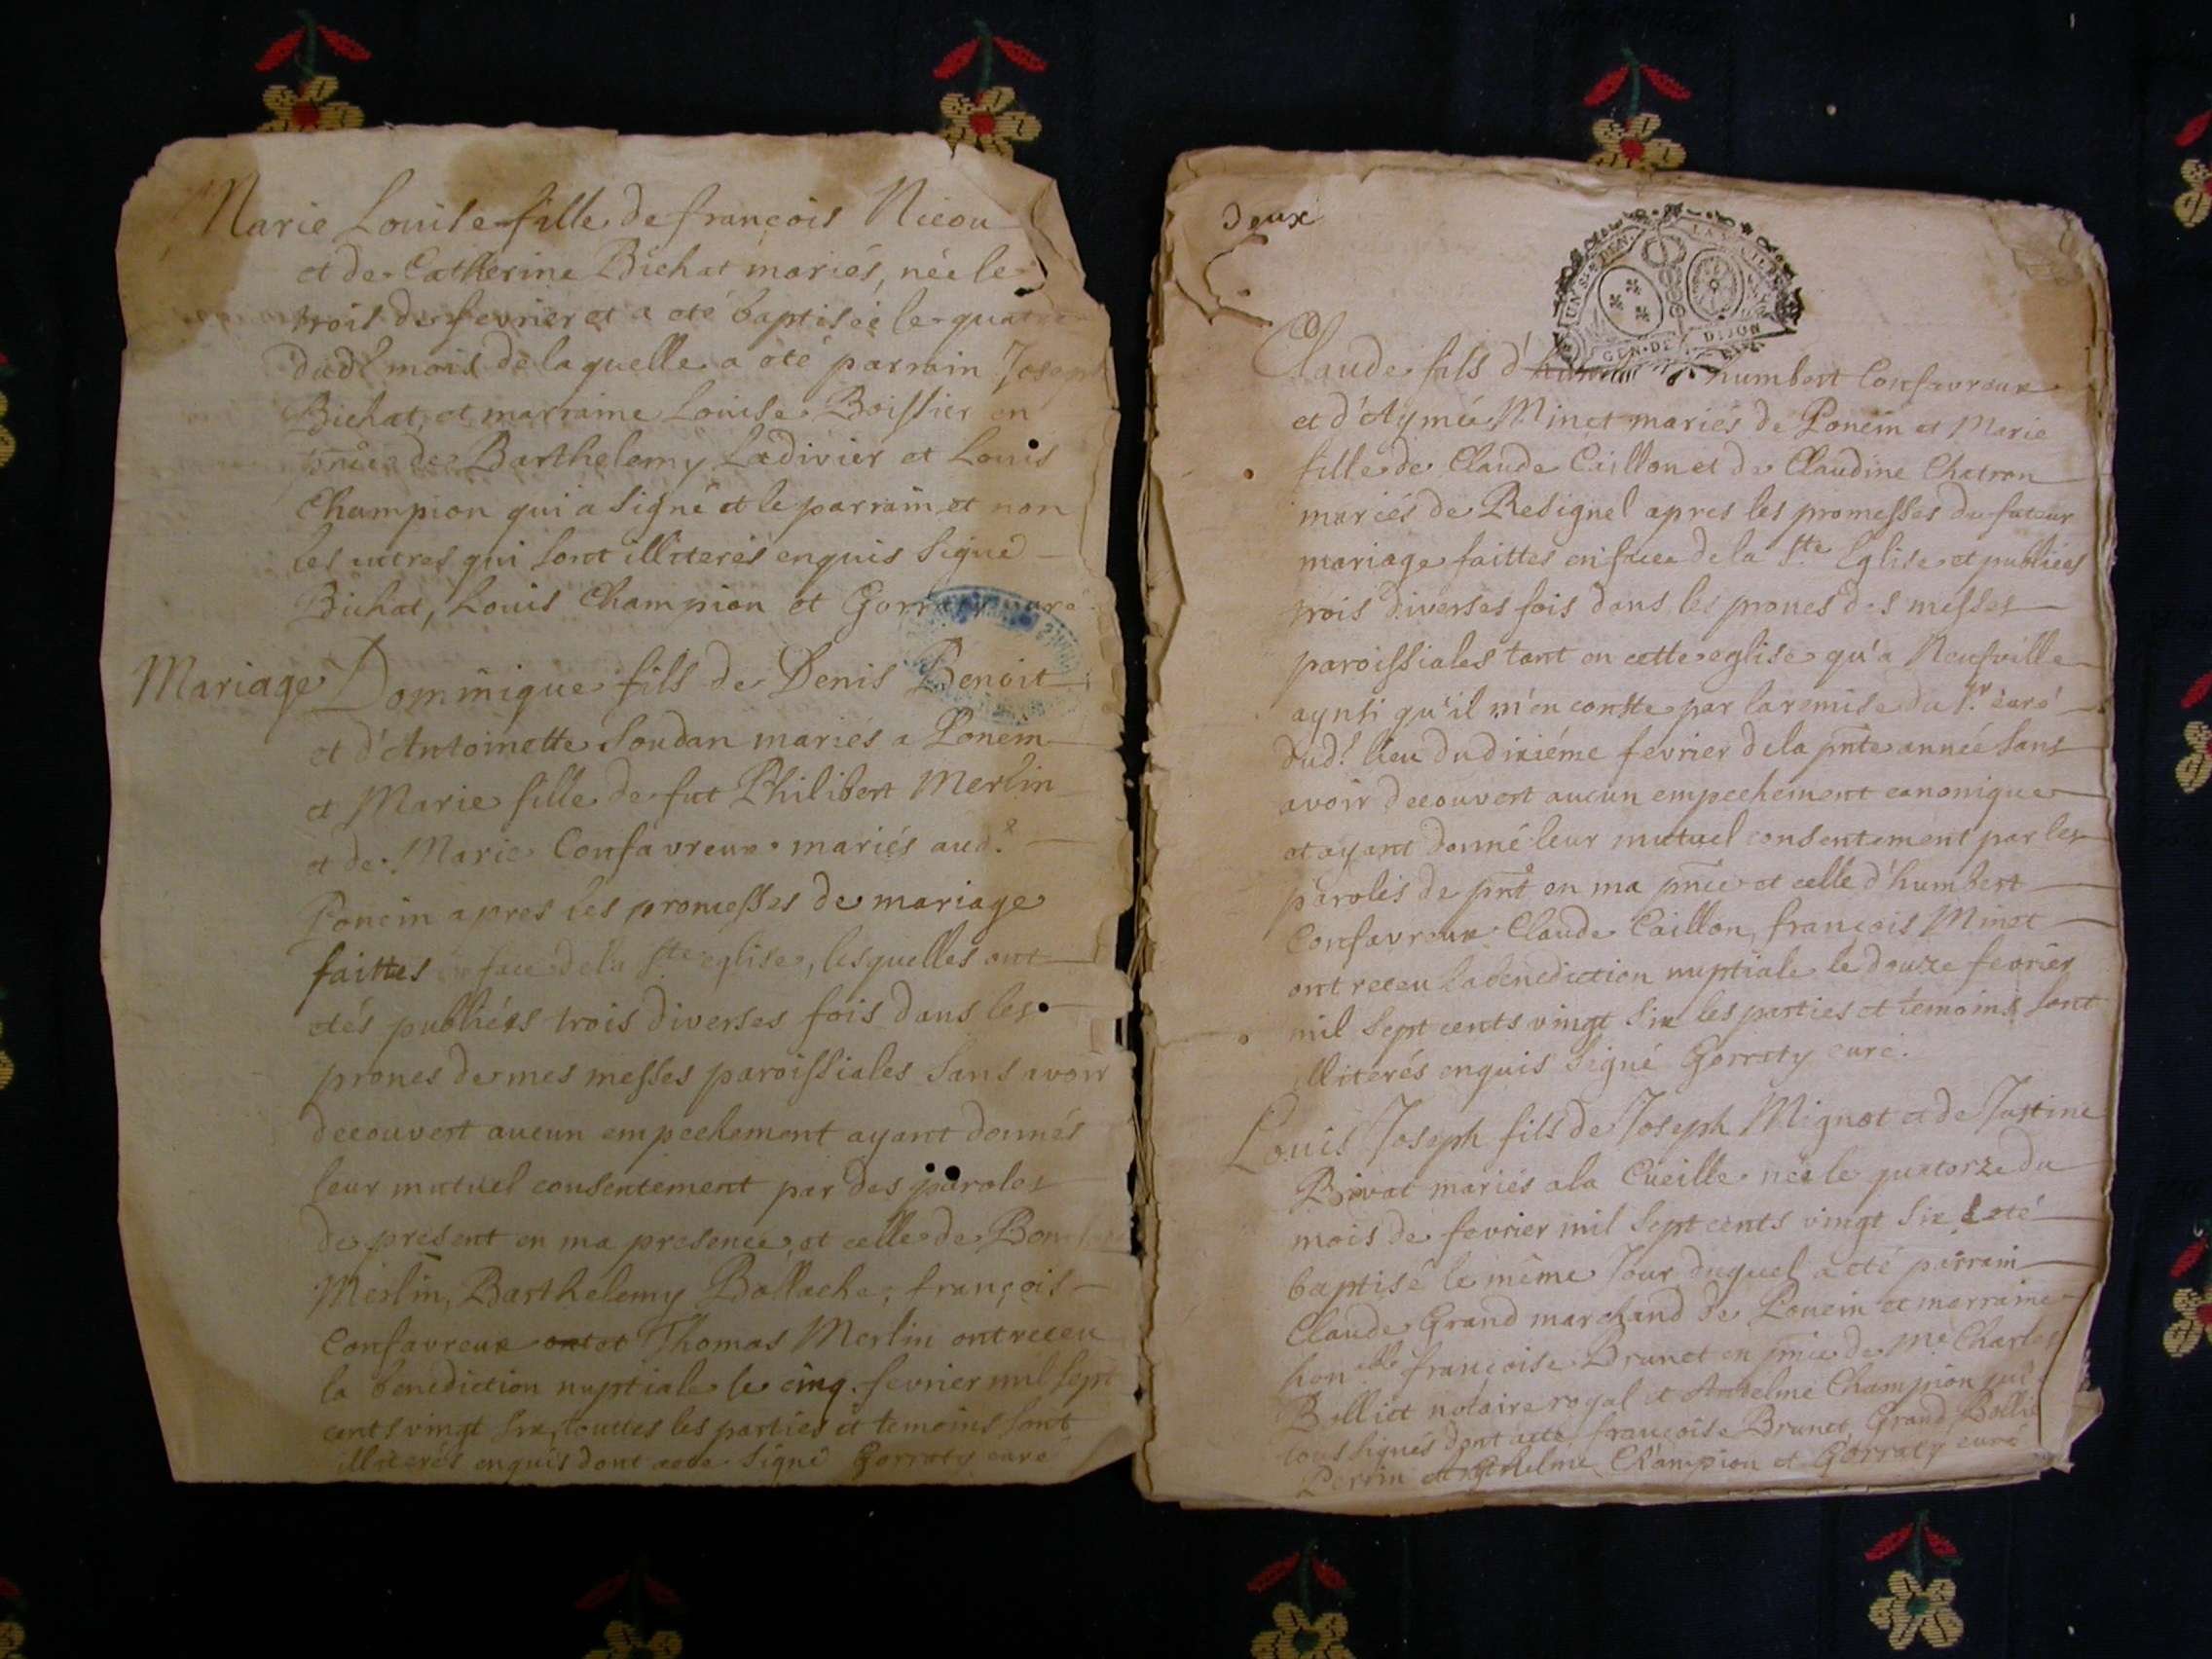 Marie Louise fille de françois Nicou
et de Catherine Bichat mariés, née le
trois de fevrier et a eté baptisée le quatre
dud.t mois de laquelle a eté parrain Joseph
Bichat, et marraine Louise Boissier en
pn̄ce de Barthelemy Ladivier et Louis
Champion qui a signé et le parrain et non
les autres qui sont illiterés enquis signé
Bichat, Louis Champion et Gorraty curé
Mariage Dominique fils de Denis Benoit
et d'Antoinette Soudan mariés a Poncin
et Marie fille de fut Philibert Merlin
et de Marie Confavreux mariés aud.t
Poncin apres les promesses de mariage
faittes en face de la Ste eglise, lesquelles ont
etés publiées trois diverses fois dans les
prones de mes messes paroissiales sans avoir
decouvert aucun empechement ayant donnés
leur mutuel consentement par des paroles
de present en ma presence, et celle de
Merlin, Barthelemy Ballache, françois
Confavreux et Thomas Merlin ont receu
la benediction nuptiale le cinq fevrier mil sept
cents vingt six, touttes les parties et temoins sont
illiterés enquis dont acte signé Gorraty curé
Deux
GEN. DE DIJON
Claude fils d' humbert Confavreux
et d'Aymée Minet mariés de Poncin et Marie
fille de Claude Caillon et de Claudine Chatron
mariés de Resignel apres les promesses du futeur
mariage faittes en face de la Ste Eglise et publiées
trois diverses fois dans les prones des messes
paroissiales tant en cette eglise qu'a Neufville
aynsi qu'il m'en conste par la remise du Sr curé
dud.t lieu du dixiéme fevrier de la pn̄te année sans
avoir decouvert aucun empechement canonique
et ayant donné leur mutuel consentement par les
paroles de pn̄t en ma pn̄ce et celle d'humbert
Confavreux Claude Caillon, françois Minet
ont receu la benediction nuptiale le douze fevrier
mil sept cents vingt six les parties et temoins sont
illiterés enquis signé Gorraty curé.
Louis Joseph fils de Joseph Mignot et de Justine
Bivat mariés a la Cueille née le quatorze du
mois de fevrier mil sept cents vingt six & eté
baptisé le même Jour duquel a eté parrain
Claude Grand marchand de Poncin et marraine
hon.ble françoise Brunet en pn̄ce de Me Charles
Belliet notaire royal et Anthelme Champion qui
tous signés dont acte françoise Brunet, Grand
Perrin Anthelme Champion et Gorraty curé